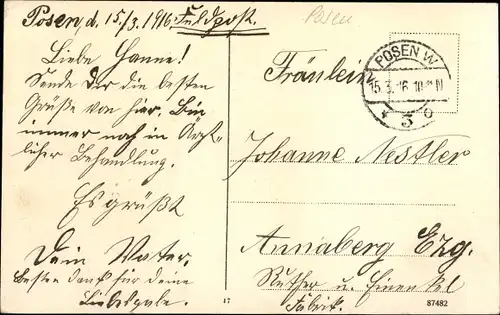 Posen, d. 15/3. 1916. Feldpost.
Posen
Liebe Hanne!
Sende Dir die besten
Grüße von hier. Bin
immer noch in ärzt-
licher Behandlung.
Es grüßt
Dein Vater.
Besten Dank für deine
Liebesgabe.
POSEN W
15.3.16.10-11N
* 3 o
Fräulein
Johanne Nestler
Annaberg Erzg.
Fabrik.
17
87482